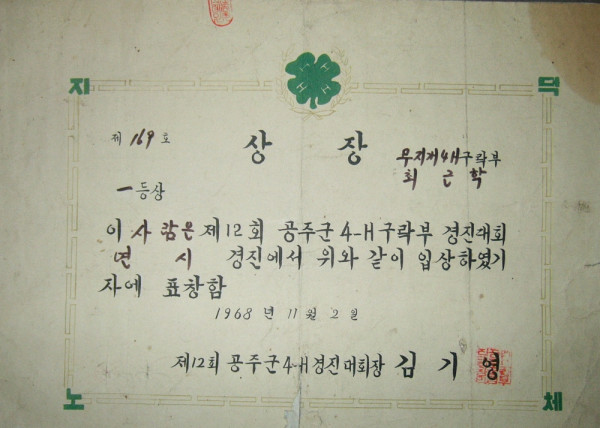 지 덕
H H H H
제 169 호
상 장
무지개4H구락부
최근학
一등상
이 사람은 제12회 공주군 4-H구락부 경진대회
면 시 경진에서 위와 같이 입상하였기
자에 표창함
1968 년 11 월 2 일
제12회 공주군4-H경진대회장 김 기 영
노 체